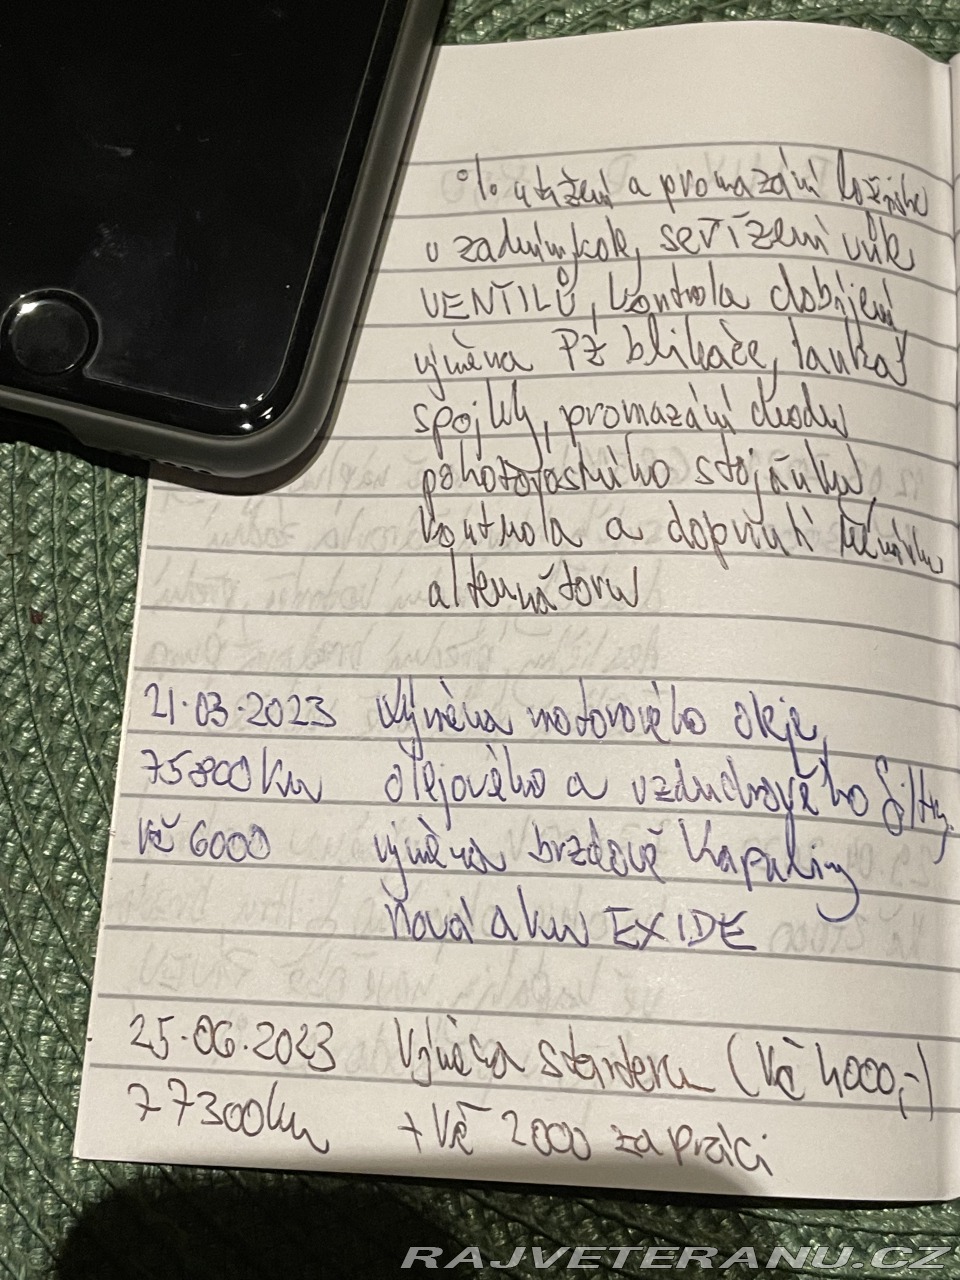 °/. utažení a promazání ložiska
u zadním kole, seřízení vůle
VENTILŮ, kontrola dobíjení,
výměna PŽ blikače, lanka
spojky, promazání chodu
pohotovostního stojánku,
kontrola a dopnutí řemínku
alternátoru
21.03.2023 Výměna motorového oleje,
75800km olejového a vzduchového filtry.
Kč 6000 výměna brzdové kapaliny
Nová aku EXIDE
25.06.2023 Výměna starteru (Kč 4000,-)
77300km +Kč 2000 za práci
RAJVETERANU.CZ